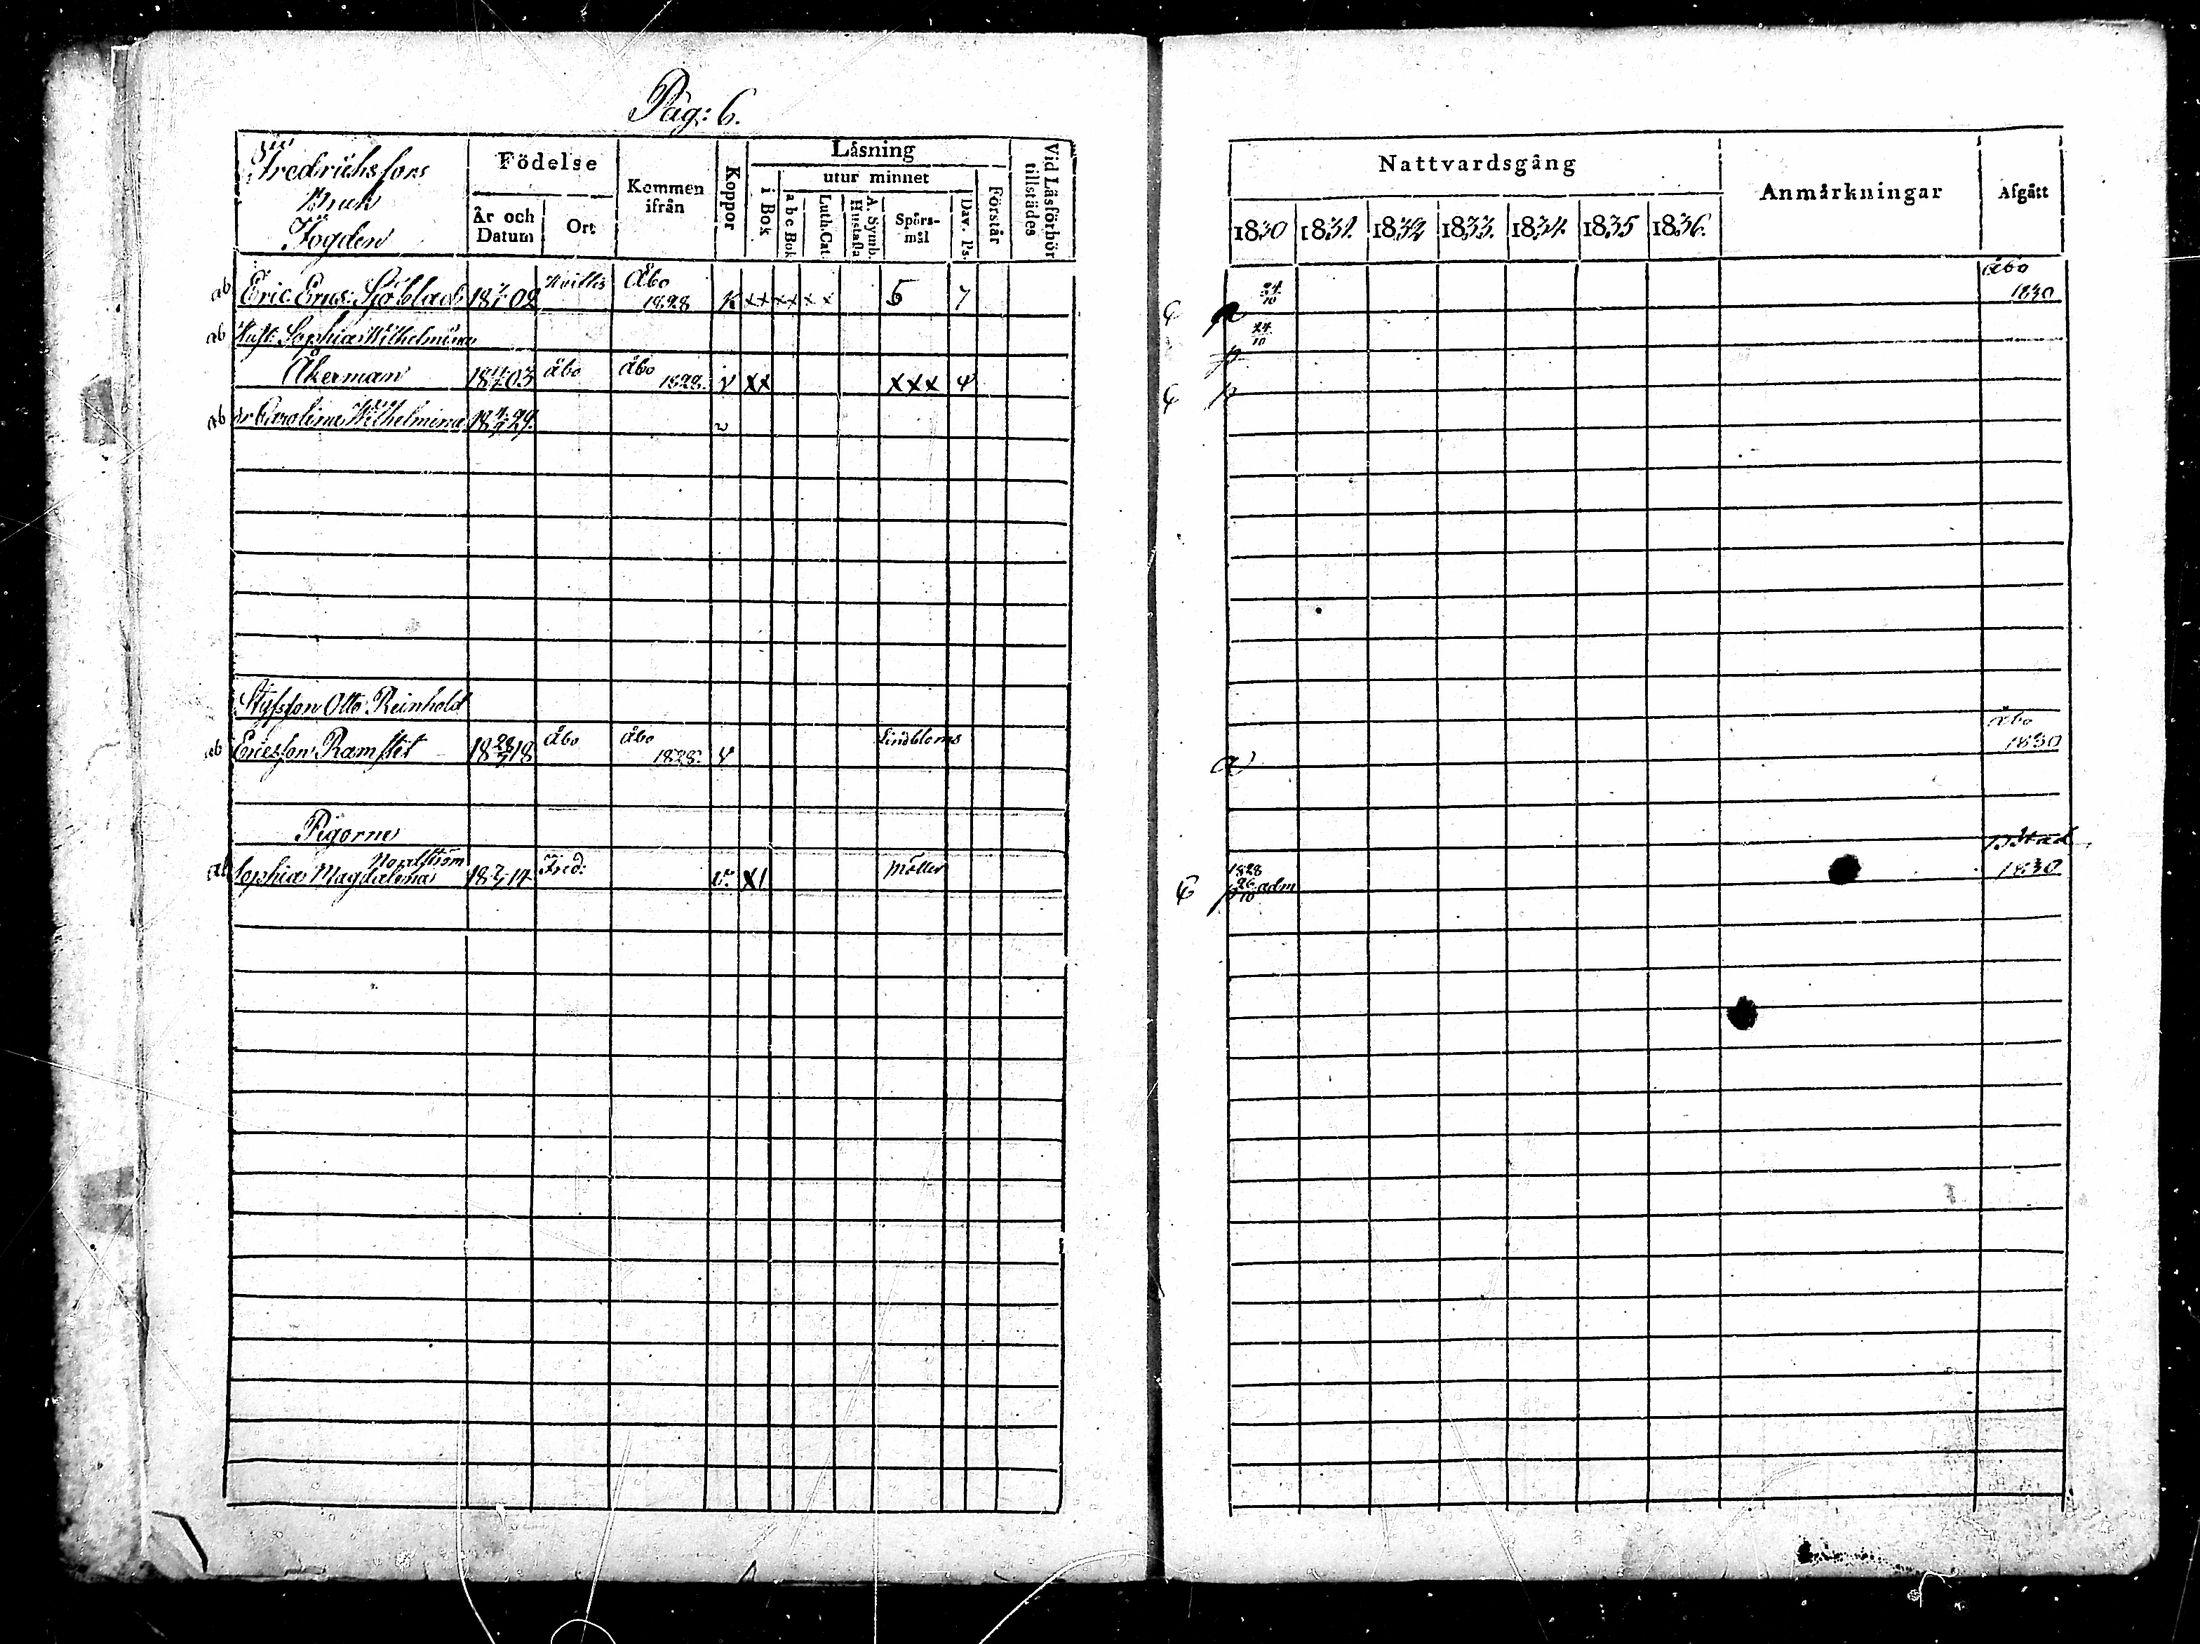 Pag: 6.
Fredrichsfors
Bruk
Fogden
Födelse
År och Datum
Ort
Kommen ifrån
Koppor
Läsning
i Bok
utur minnet
a b c Bok
Luth. Cat.
A. Symb. Hustafla
Spörsmål
Dav. Ps.
Förstår
Vid Läsförhör tillstädes
Nattvardsgång
1830 1831. 1832 1833. 1834. 1835 1836.
Anmärkningar
Afgått
ab Eric Sjöblad Åbo 1828 xx xx x x 5 7 24/10 Åbo 1830
ab Hust: Sophia Wilhelmina 24/10
Åkerman Åbo Åbo 1828. v xx xxx
ab dr Carolina Wilhelmina
Styfson Otto Reinhold
ab Ericsson Ramstet 18 28/ 18 Åbo Åbo 1828. Lindbloms Åbo 1830
Pigorne
Nordström
ab Sophia Magdalena 14 Fred: v. XI Möller 1828 26/10 adm 1830